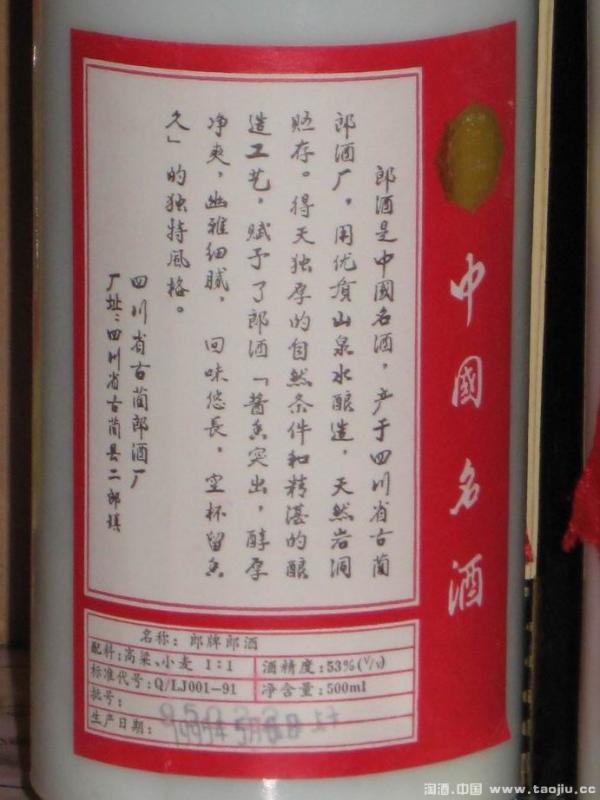 中國名酒
郎酒是中國名酒，产于四川省古蔺
郎酒厂，用优质山泉水酿造，天然岩洞
贮存。得天独厚的自然条件和精湛的酿
造工艺，赋予了郎酒「酱香突出，醇厚
净爽，幽雅细腻，回味悠長，空杯留香
久」的独特风格。
四川省古蔺郎酒厂
厂址：四川省古蔺县二郎镇
名称：郎牌郎酒
配料：高粱、小麦 1:1 酒精度：53%(V/V)
标准代号：Q/LJ001-91 净含量：500ml
批号：
生产日期：
淘酒.中国 www.taojiu.cc